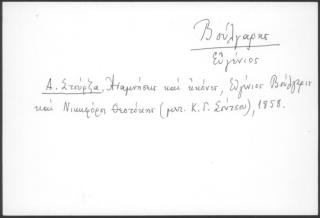 Βούλγαρης
Εὐγένιος
Α. Στούρζα, Ἀναμνήσεις καὶ εἰκόνες, Εὐγένιος Βούλγαρις
καὶ Νικηφόρος Θεοτόκης (μετ. Κ. Γ. Σούτσου), 1858.